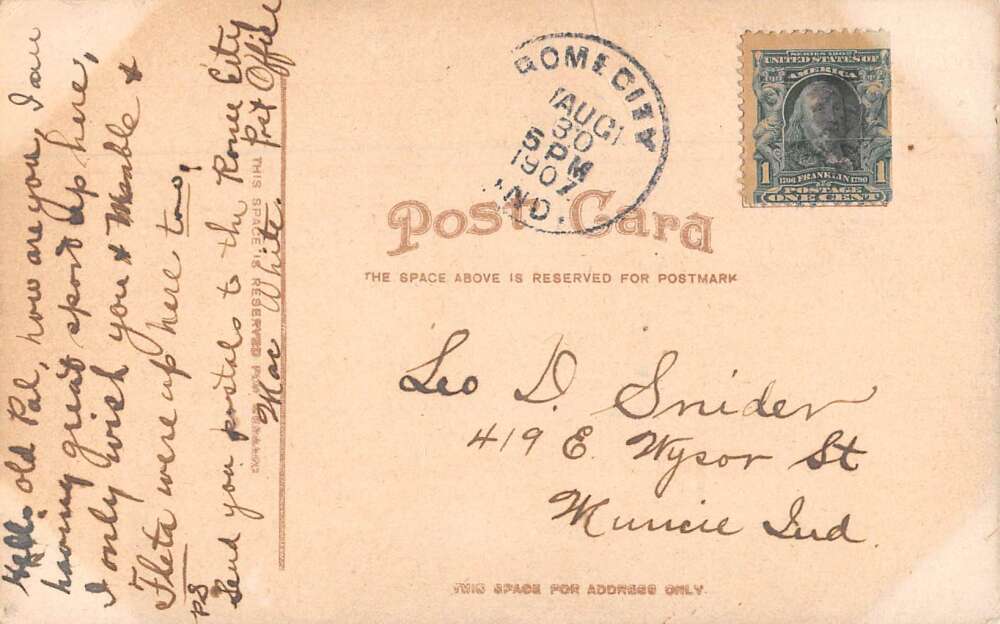 Hello old Pal, how are you, I am
having great sport up here,
I only wish you & Memble &
Fleta were up here too!
PS
Send your postals to the Rome City
Post Office
Mac White.
THIS SPACE IS RESERVED FOR
ROME CITY
AUG
30
5 PM
1907
IND.
SERIES 1902
UNITED STATES OF
AMERICA
1
1706 FRANKLIN 1790
1
POSTAGE
ONE CENT
Post Card
THE SPACE ABOVE IS RESERVED FOR POSTMARK
Leo D. Snider
419 E. Wysor St
Muncie Ind.
THIS SPACE FOR ADDRESS ONLY.